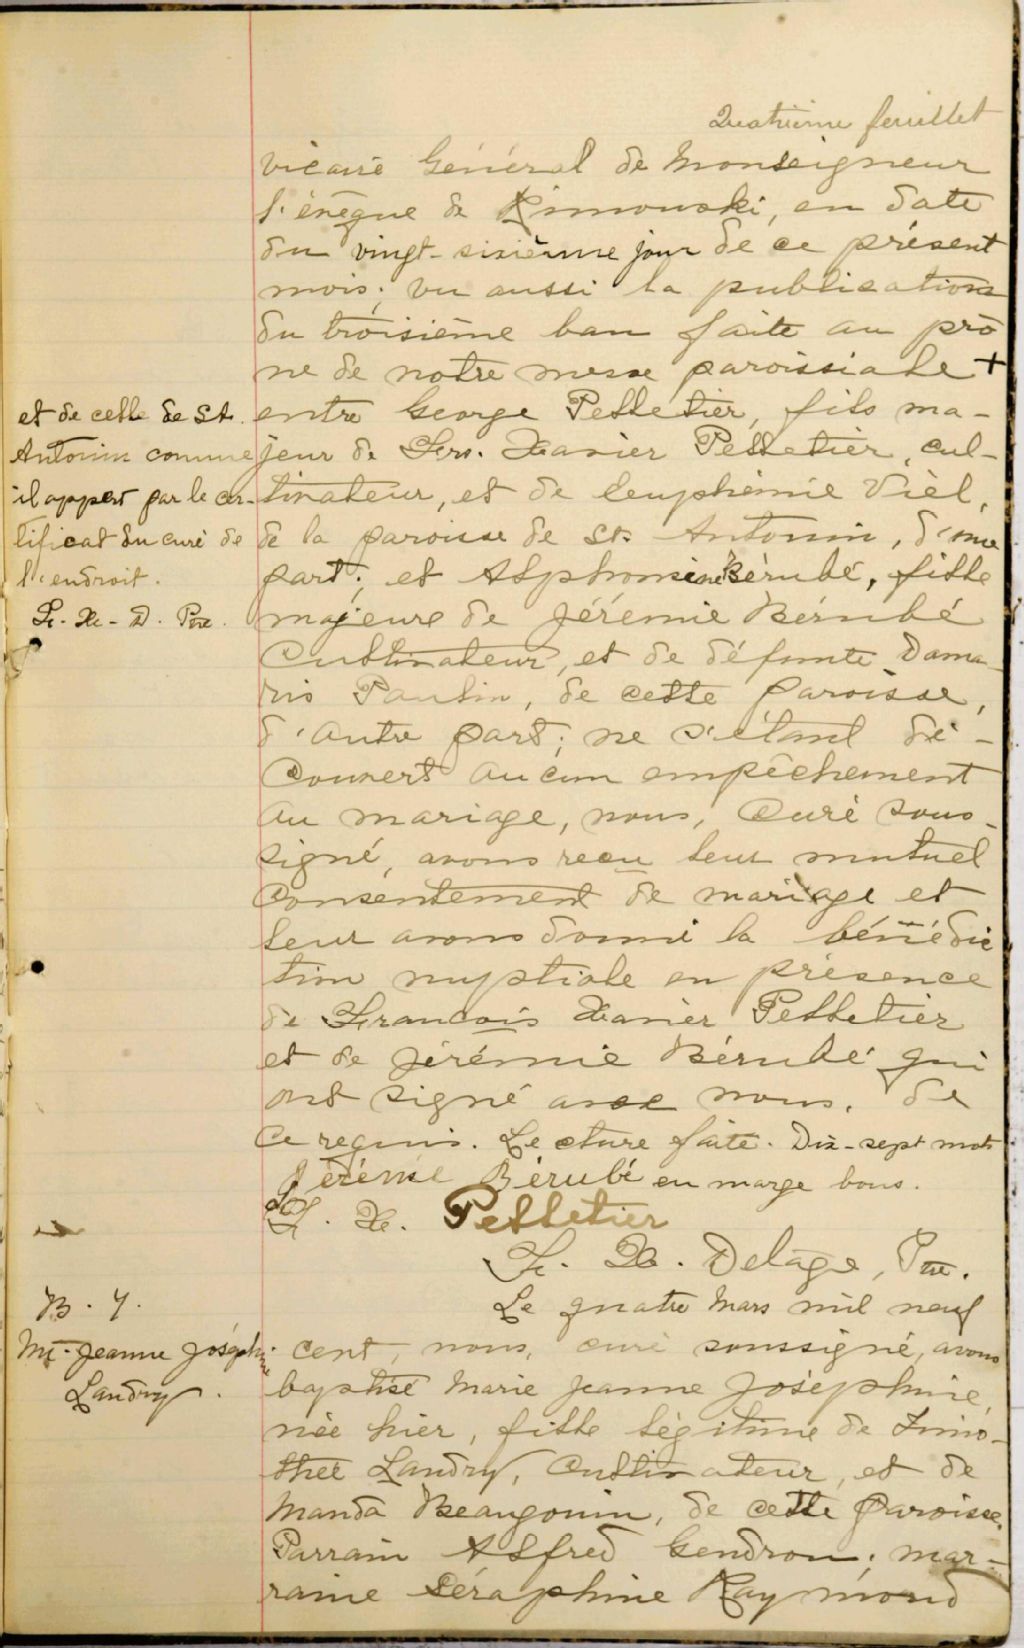 Quatrième feuillet
vicaire Général de Monseigneur
l'évêque de Rimouski, en date
du vingt-sixième jour de ce présent
mois; vu aussi la publication
du troisième ban faite au prô
ne de notre messe paroissiale +
entre George Pelletier, fils ma-
jeur de Frs. Xavier Pelletier, cul-
tivateur, et de Euphémie Viel,
de la paroisse de St. Antonin, d'une
part; et Alphonsine Bérubé, fille
majeure de Jérémie Bérubé
Cultivateur, et de défunte Dama-
ris Paulin, de cette Paroisse,
d'autre part; ne s'étant dé-
couvert aucun empêchement
au mariage, nous, Curé sous-
signé, avons reçu leur mutuel
consentement de mariage et
leur avons donné la bénédic
tion nuptiale en présence
de François Xavier Pelletier
et de Jérémie Bérubé qui
ont signé avec nous. De
ce requis. Lecture faite. Dix-sept mots
en marge bons.
Jérémie Bérubé
F. X. Pelletier
F. X. Delâge, Ptre.
et de celle de St.
Antonin comme
il appert par le cer-
tificat du curé de
l'endroit.
F. X. D. Ptre.
B. 7.
Me. Jeanne Joséphine
Landry.
Le quatre Mars mil neuf
cent, nous, curé soussigné, avons
baptisé Marie Jeanne Joséphine,
née hier, fille légitime de Timo-
thée Landry, Cultivateur, et de
Manda Beaugouin, de cette Paroisse.
Parrain Alfred Gendron; mar-
raine Séraphine Raymond